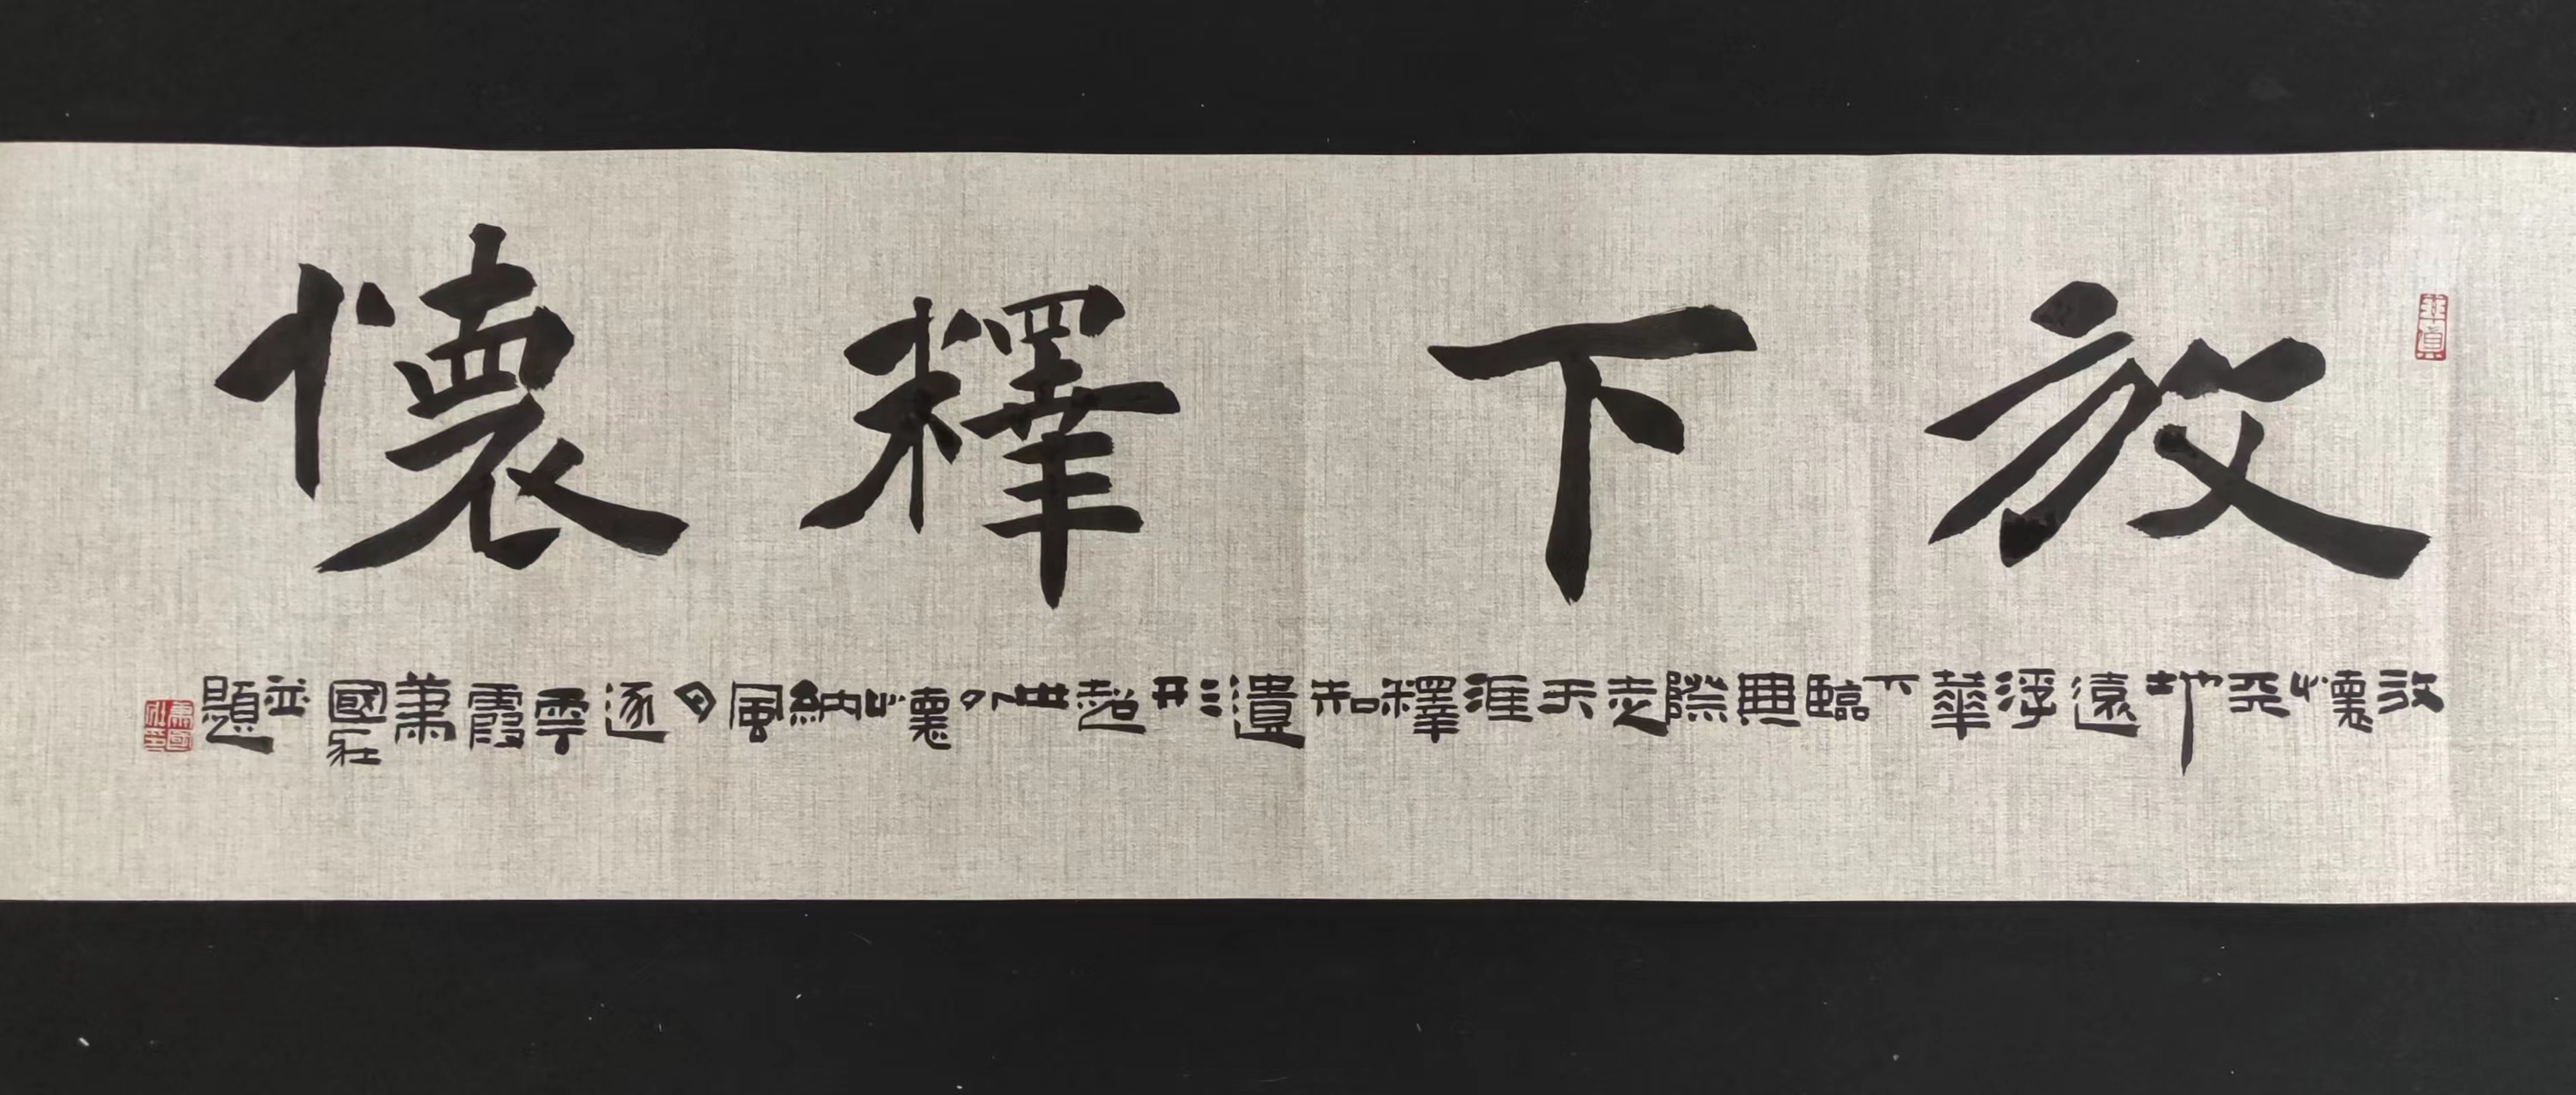 放下釋懷
放懷天地遠浮華下臨無際走天涯釋知遺形超世外懷納風月逐雲霞蕭國並題